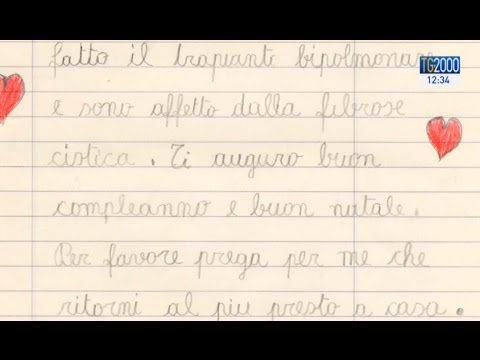 TG2000
12:34
fatto il trapianto bipolmonare
e sono affetto dalla fibrose
cistica. Ti auguro buon
compleanno e buon natale.
Per favore prega per me che
ritorni al piu presto a casa.